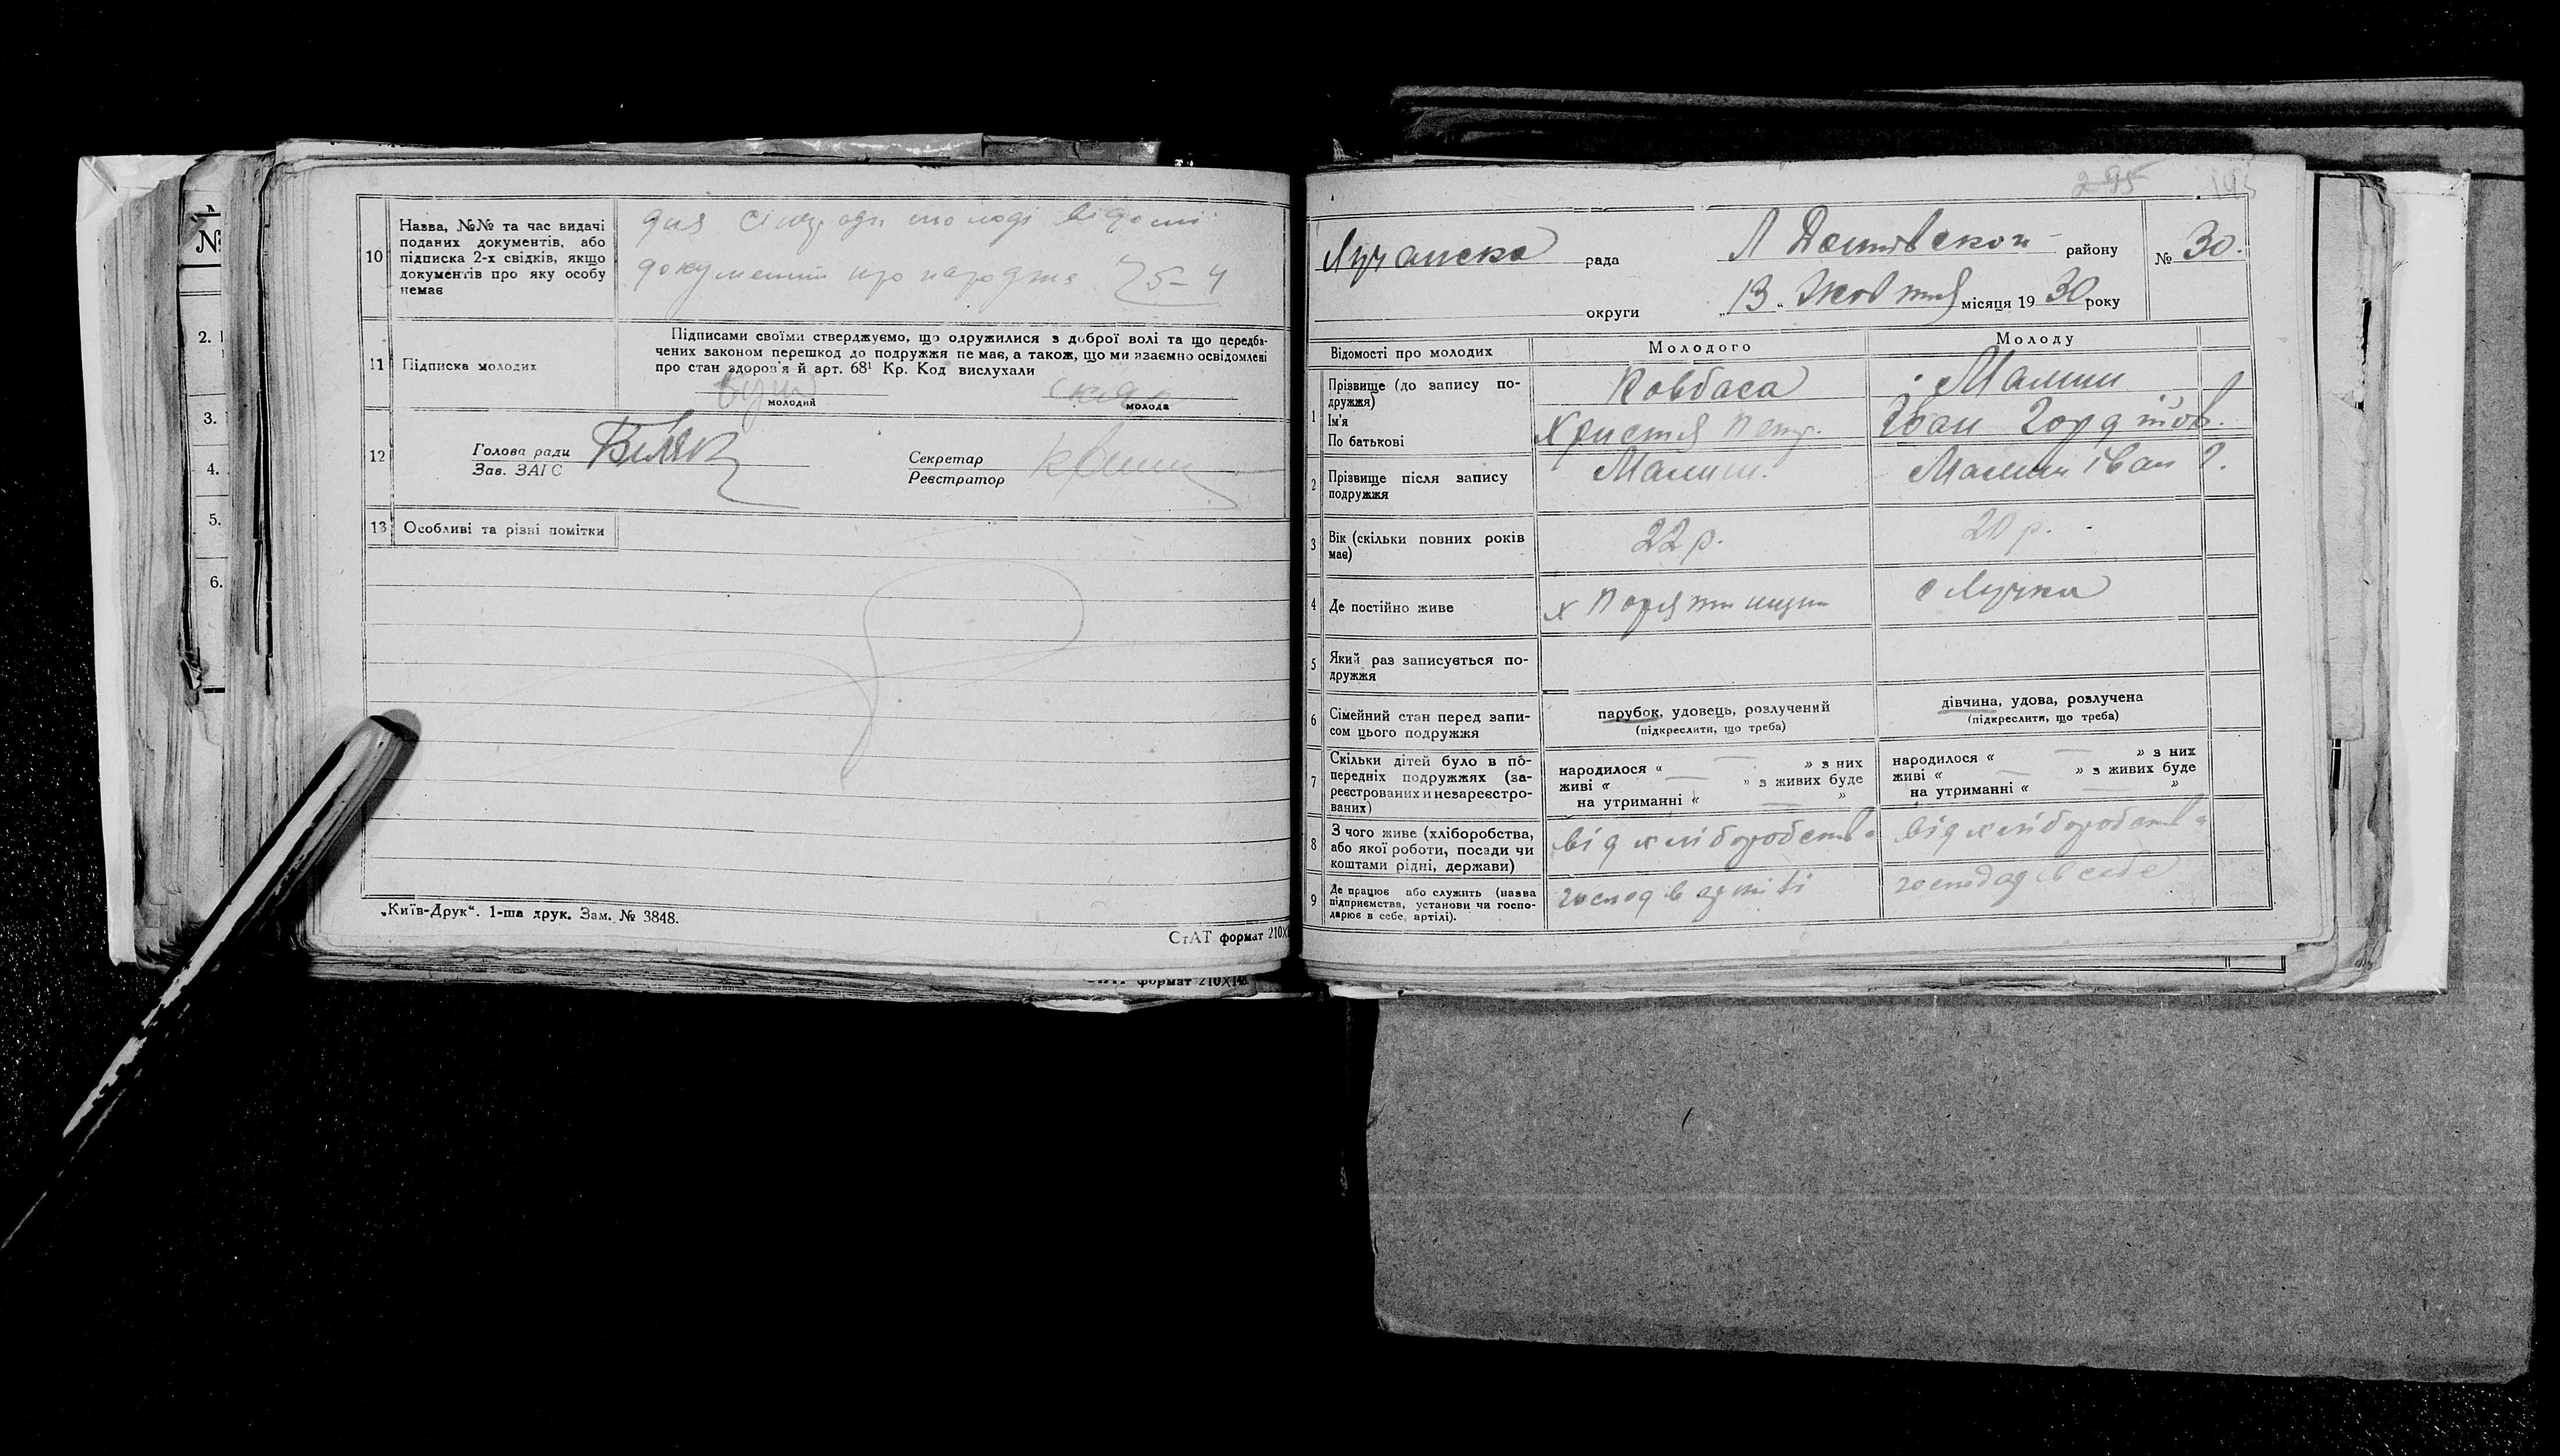 10 Назва, №№ та час видачі
поданих документів, або
підписка 2-х свідків, якщо
документів про яку особу
немає
для молоді відомі
документи про
25-4
11 Підписка молодих
Підписами своїми стверджуємо, що одружилися з доброї волі та що передба-
чених законом перешкод до подружжя немає, а також, що ми взаємно освідомлені
про стан здоров'я й арт. 68¹ Кр. Код вислухали
молодий
молода
12 Голова ради
Зав. ЗАГС
Секретар
Реєстратор
13 Особливі та різні помітки
„Київ-Друк“. 1-ша друк. Зам. № 3848.
СтАТ формат 210X1
формат 210X148
№
2.
3.
4.
5.
6.
295
Лучанська рада
району
№ 30.
округи
„13„ Жовтня місяця 1930 року
Відомості про молодих
Молодого
Молоду
1 Прізвище (до запису по-
дружжя)
Ім'я
По батькові
Ковбаса
Христя Петр.
Малиш
Іван Гордійов.
2 Прізвище після запису
подружжя
Малиш.
Малиш Іван Г.
3 Вік (скільки повних років
має)
22 р.
20 р.
4 Де постійно живе
х
с Лучка
5 Який раз записується по-
дружжя
6 Сімейний стан перед запи-
сом цього подружжя
парубок, удовець, розлучений
(підкреслити, що треба)
дівчина, удова, розлучена
(підкреслити, що треба)
7 Скільки дітей було в по-
передніх подружжях (за-
реєстрованих и незареєстро-
ваних)
народилося « — » з них
живі « — » з живих буде
на утриманні « — »
народилося « — » з них
живі « — » з живих буде
на утриманні « — »
8 З чого живе (хліборобства,
або якої роботи, посади чи
коштами рідні, держави)
від хліборобства
від хліборобства
9 Де працює або служить (назва
підприємства, установи чи госпо-
дарює в себе, артілі).
господ в артілі
господар в себе